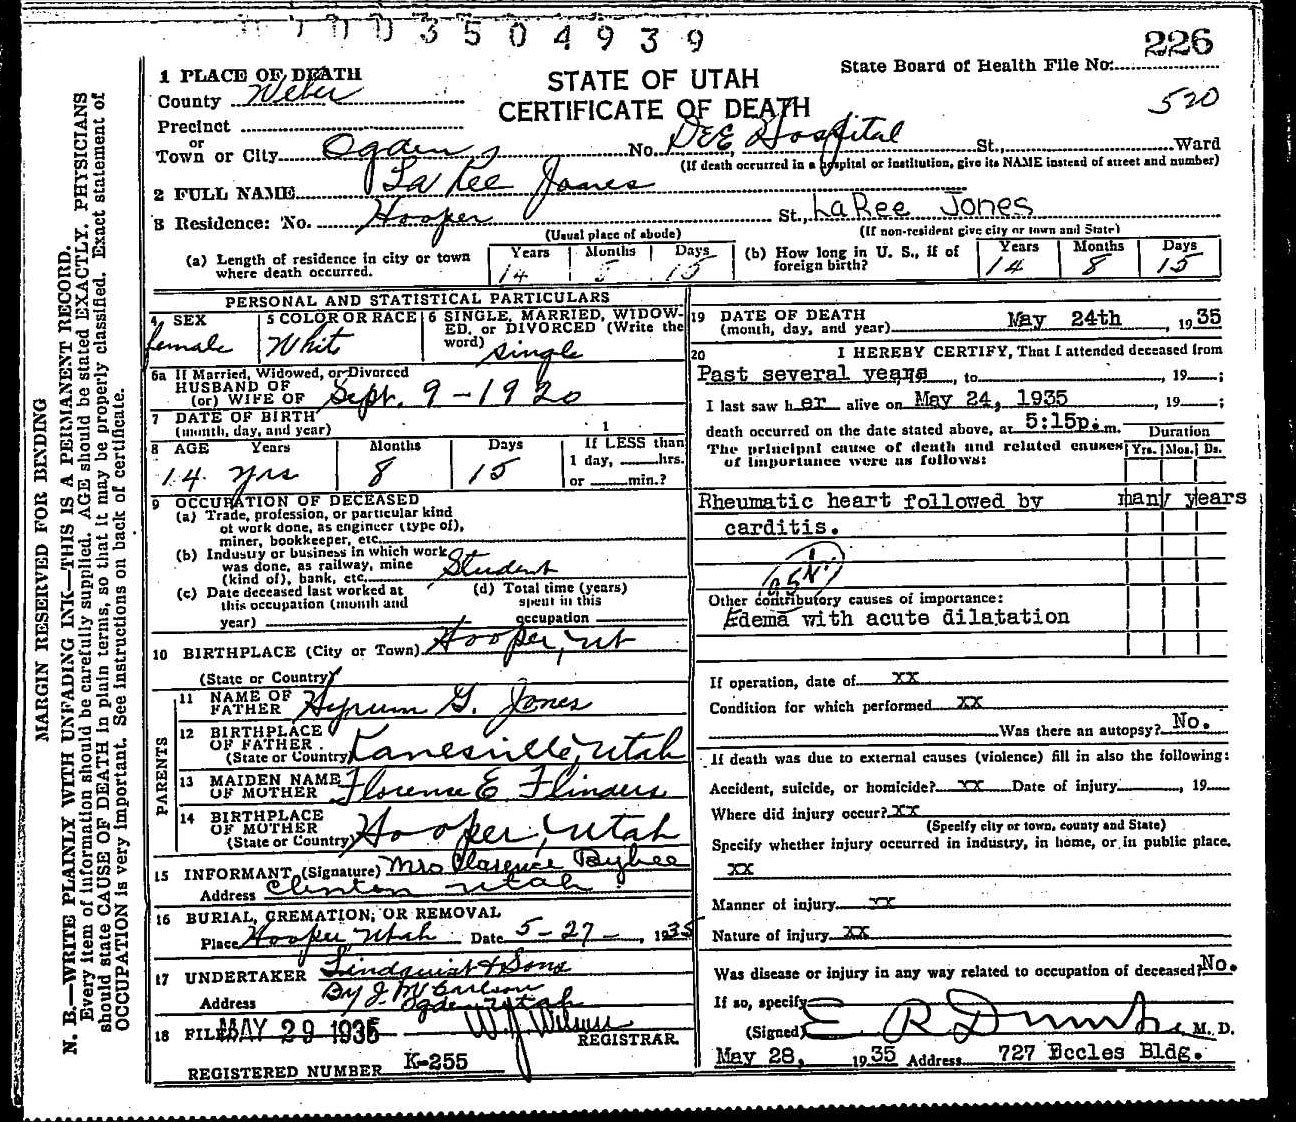 3504939
226
1 PLACE OF DEATH
STATE OF UTAH
State Board of Health File No:
County Weber
CERTIFICATE OF DEATH
520
Precinct
or
Town or City Ogden No. DEE Hospital St., Ward
(If death occurred in a hospital or institution, give its NAME instead of street and number)
2 FULL NAME La Ree Jones
3 Residence: No. Hooper St., LaRee Jones
(Usual place of abode) (If non-resident give city or town and State)
(a) Length of residence in city or town where death occurred. Years 14 Months 5 Days 15 (b) How long in U. S., if of foreign birth? Years 14 Months 8 Days 15
PERSONAL AND STATISTICAL PARTICULARS
4 SEX female
5 COLOR OR RACE White
6 SINGLE, MARRIED, WIDOW-
ED, or DIVORCED (Write the
word) single
6a If Married, Widowed, or Divorced
HUSBAND OF
(or) WIFE OF Sept. 9-1920
7 DATE OF BIRTH
(month, day, and year) 1
8 AGE Years Months Days If LESS than
14 yrs 8 15 1 day, hrs.
or min.?
9 OCCUPATION OF DECEASED
(a) Trade, profession, or particular kind
of work done, as engineer (type of),
miner, bookkeeper, etc.
(b) Industry or business in which work
was done, as railway, mine
(kind of), bank, etc. Student
(c) Date deceased last worked at
this occupation (month and
year)
(d) Total time (years)
spent in this
occupation
10 BIRTHPLACE (City or Town) Hooper, Ut
(State or Country)
PARENTS
11 NAME OF
FATHER Hyrum G. Jones
12 BIRTHPLACE
OF FATHER
(State or Country) Kanesville, Utah
13 MAIDEN NAME
OF MOTHER Florense E Flinders
14 BIRTHPLACE
OF MOTHER
(State or Country) Hooper, Utah
15 INFORMANT (Signature) Mrs Clarence Bybee
Address Clinton Utah
16 BURIAL, CREMATION, OR REMOVAL
Place Hooper, Utah Date 5-27-, 1935
17 UNDERTAKER Lindquist & Sons
By J. M Carlson
Address Ogden Utah
18 FILED MAY 29 1935 W J Wilson
REGISTRAR.
REGISTERED NUMBER K-255
19 DATE OF DEATH
(month, day, and year) May 24th, 1935
20 I HEREBY CERTIFY, That I attended deceased from
Past several years, to , 19 ;
I last saw her alive on May 24, 1935, 19 ;
death occurred on the date stated above, at 5:15p.m. Duration
The principal cause of death and related causes Yrs. Mos. Ds.
of importance were as follows:
Rheumatic heart followed by many years
carditis.
Other contributory causes of importance:
Edema with acute dilatation
If operation, date of xx
Condition for which performed xx
Was there an autopsy? No.
If death was due to external causes (violence) fill in also the following:
Accident, suicide, or homicide? xx Date of injury , 19
Where did injury occur? xx
(Specify city or town, county and State)
Specify whether injury occurred in industry, in home, or in public place.
xx
Manner of injury xx
Nature of injury xx
Was disease or injury in any way related to occupation of deceased? No.
If so, specify
(Signed) E. R. Dumke M. D.
May 28, 1935 Address 727 Eccles Bldg.
MARGIN RESERVED FOR BINDING
N. B.—WRITE PLAINLY WITH UNFADING INK—THIS IS A PERMANENT RECORD.
Every item of information should be carefully supplied. AGE should be stated EXACTLY. PHYSICIANS
should state CAUSE OF DEATH in plain terms, so that it may be properly classified. Exact statement of
OCCUPATION is very important. See instructions on back of certificate.